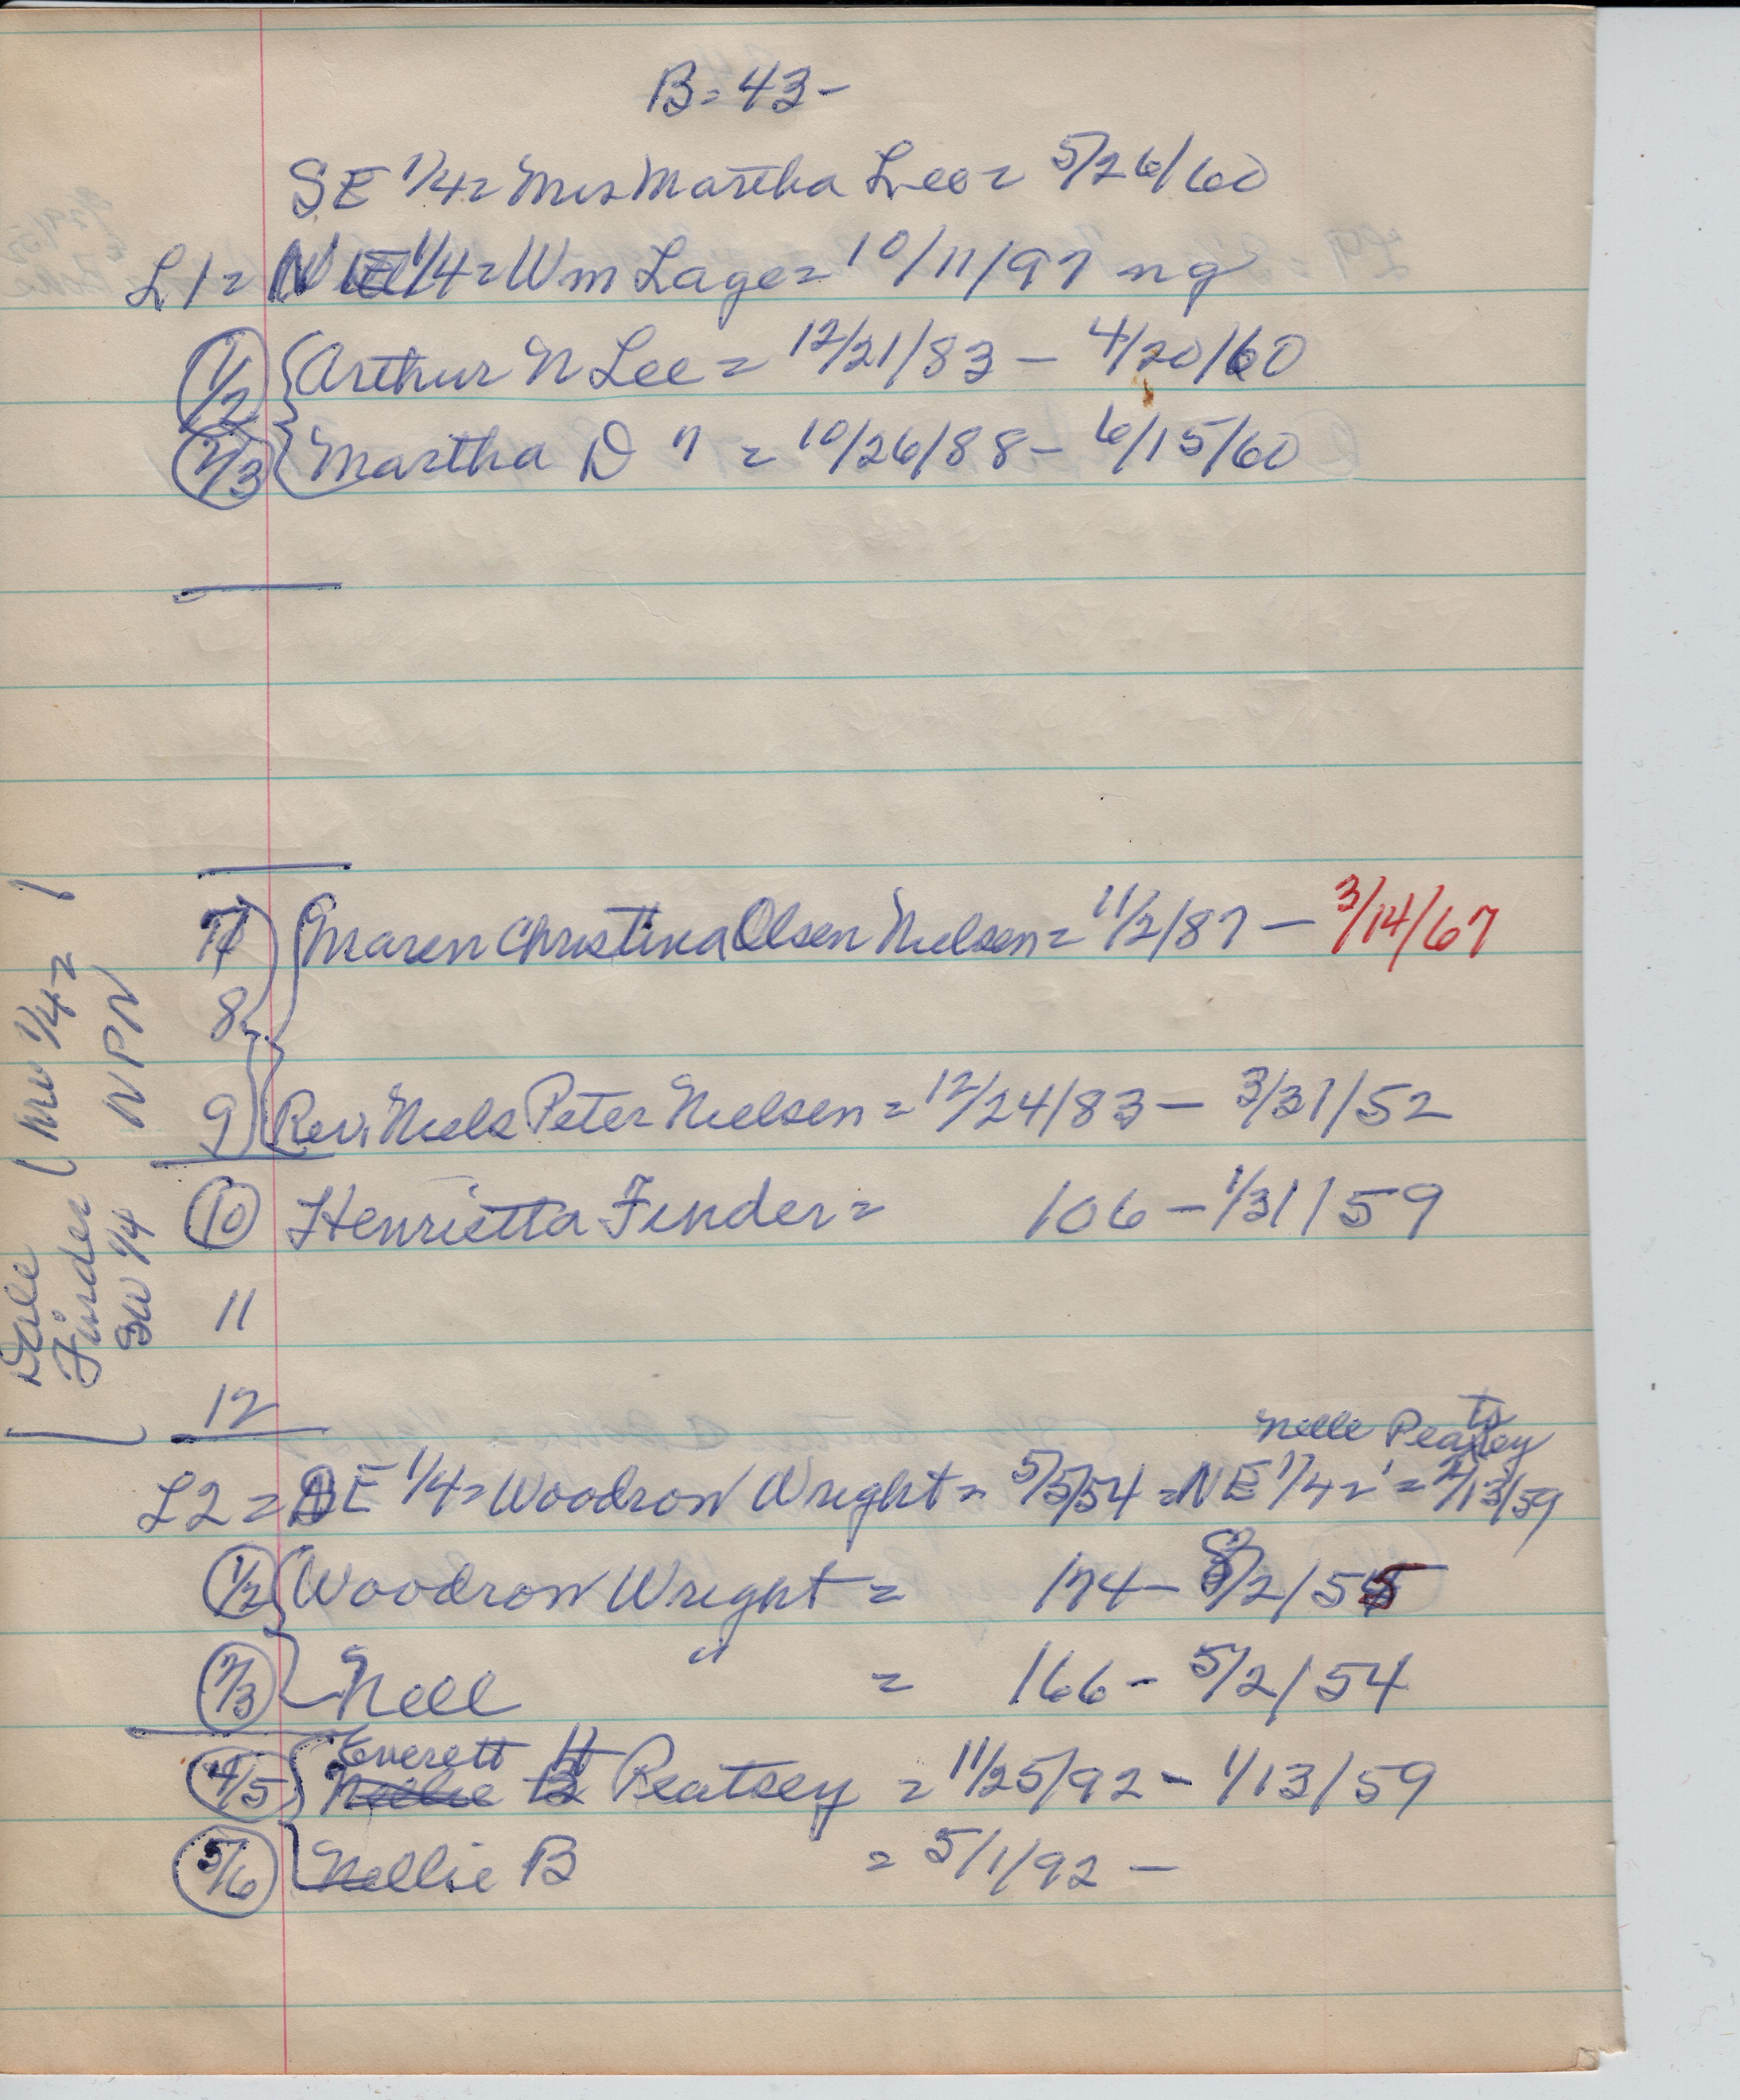 B = 43 -
SE 1/4 = Mrs Martha Lee = 5/26/60
L1 = NE 1/4 = Wm Lage = 10/11/97 ng
1/2 Arthur N Lee = 12/21/83 - 4/20/60
2/3 Martha D " = 10/26/88 - 6/15/60
7 Maren Christina Olsen Nielsen = 11/2/87 - 3/14/67
8
9 Rev. Niels Peter Nielsen = 12/24/83 - 3/31/52
10 Henrietta Finder = 106 - 1/31/59
11
12
NW 1/4 =
NPN
Dale
Finder
SW 1/4
Nelle Peatsey
L2 = SE 1/4 = Woodrow Wright = 5/5/54 = NE 1/4 = ' = 2/13/59
1/2 Woodrow Wright = 174 - 8/2/55
2/3 Nell " = 166 - 5/2/54
Everett H
4/5 Nellie B Peatsey = 11/25/92 - 1/13/59
5/6 Nellie B = 5/1/92 -